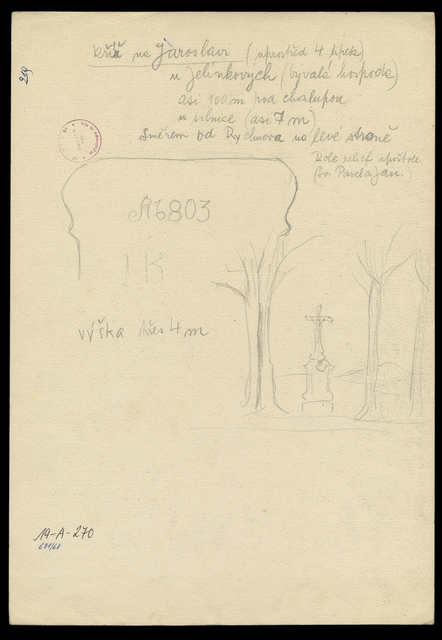 kříž na Jaroslavi (uprostřed 4 lipek)
u Jelínkových (bývalé hospode)
asi 100 m pod chalupou
u silnice (asi 7 m)
Směrem od Rychnova na levé straně
Dole relief apoštole
(sv. Pavel a Jan.)
A6803
1K
výška přes 4 m
19-A-270